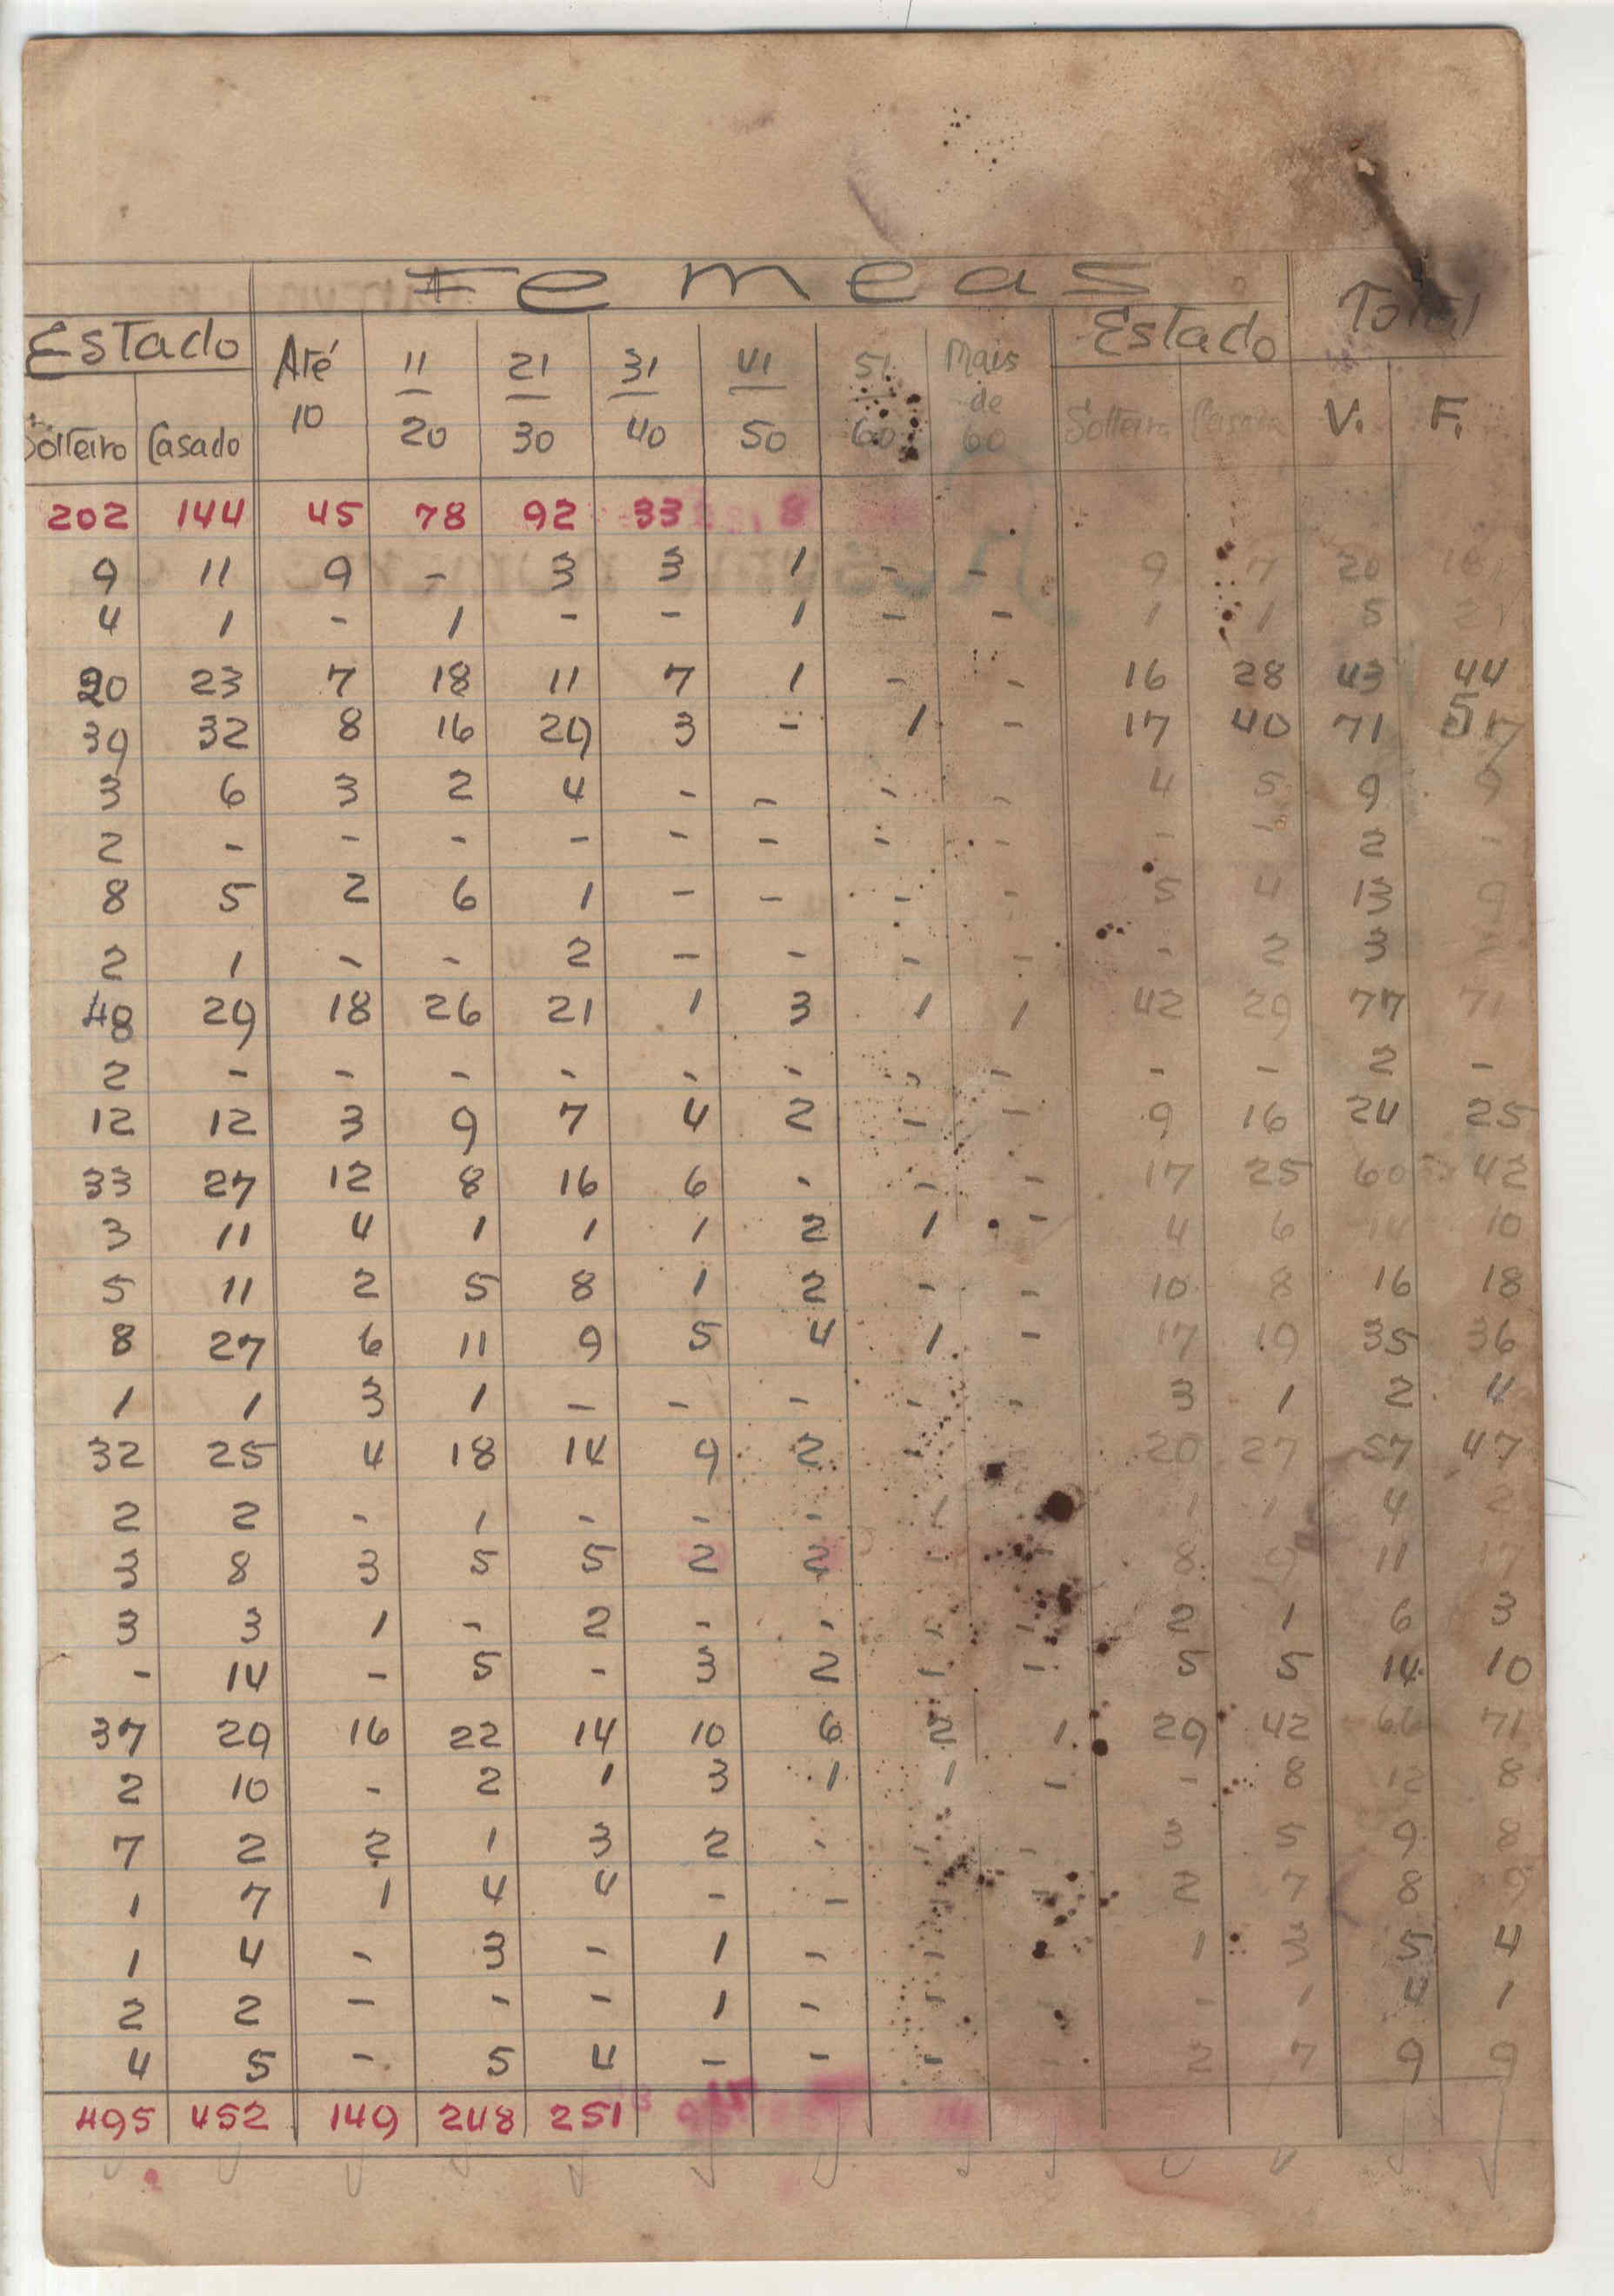 Femeas
Estado Estado Total
Até 11 21 31 41 51 Mais
10 20 30 40 50 60 de 60
Solteiro Casado Solteira Casada V. F.
202 144 45 78 92 33 8
9 11 9 - 3 3 1 - - 9 7 20
4 1 - 1 - - 1 - - 1 1 5
20 23 7 18 11 7 1 - - 16 28 43 44
39 32 8 16 29 3 - 1 - 17 40 71 57
3 6 3 2 4 - - - - 4 5 9 9
2 - - - - - - - - - - 2 -
8 5 2 6 1 - - - - 5 4 13 9
2 1 - - 2 - - - - - 2 3
48 29 18 26 21 1 3 1 1 42 29 77 71
2 - - - - - - - - - - 2 -
12 12 3 9 7 4 2 - - 9 16 24 25
33 27 12 8 16 6 - - - 17 25 60 42
3 11 4 1 1 1 2 1 - 4 6 14 10
5 11 2 5 8 1 2 - - 10 8 16 18
8 27 6 11 9 5 4 1 - 17 19 35 36
1 1 3 1 - - - - - 3 1 2 4
32 25 4 18 14 9 2 - 20 27 57 47
2 2 - 1 - - - 1 1 1 4 2
3 8 3 5 5 2 2 - - 8 9 11 17
3 3 1 - 2 - - - - 2 1 6 3
- 14 - 5 - 3 2 - - 5 5 14 10
37 29 16 22 14 10 6 2 1 29 42 66 71
2 10 - 2 1 3 1 1 - - 8 12 8
7 2 2 1 3 2 - - 3 5 9 8
1 7 1 4 4 - - - 2 7 8 9
1 4 - 3 - 1 - - 1 3 5 4
2 2 - - - 1 - - - 1 4 1
4 5 - 5 4 - - - - 2 7 9 9
495 452 149 248 251